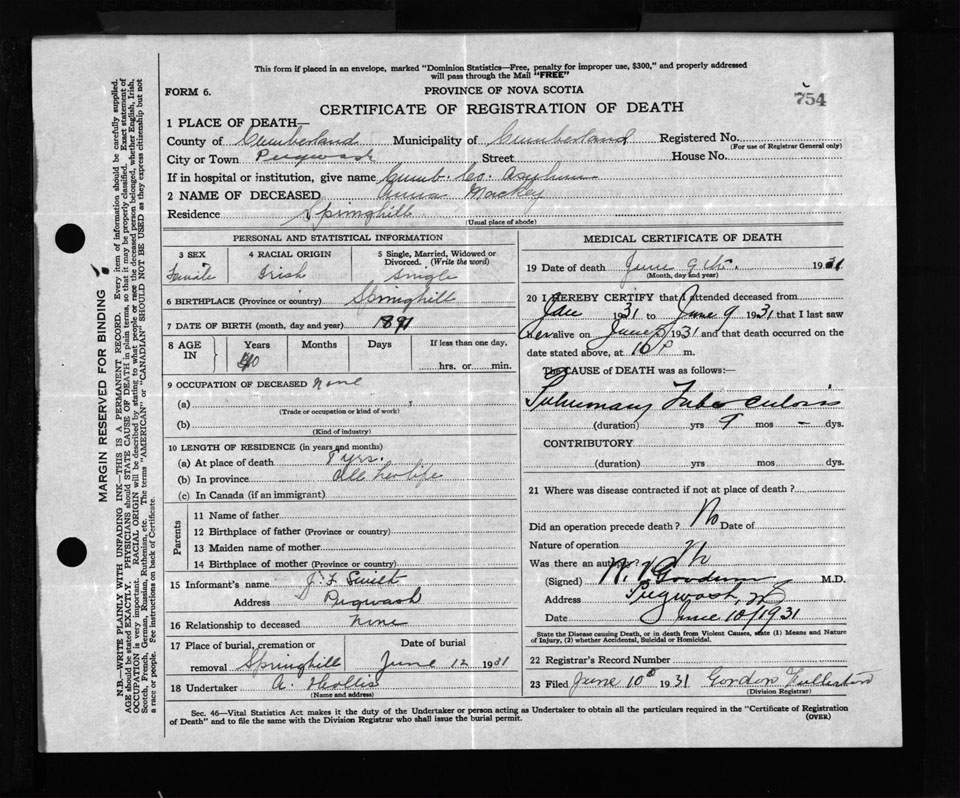 This form if placed in an envelope, marked "Dominion Statistics—Free, penalty for improper use, $300," and properly addressed
will pass through the Mail "FREE"
FORM 6.
PROVINCE OF NOVA SCOTIA
754
CERTIFICATE OF REGISTRATION OF DEATH
1 PLACE OF DEATH—
County of Cumberland Municipality of Cumberland Registered No.
(For use of Registrar General only)
City or Town Pugwash Street House No.
If in hospital or institution, give name Cumb. Co. Asylum
2 NAME OF DECEASED Anna Mackey
Residence Springhill
(Usual place of abode)
PERSONAL AND STATISTICAL INFORMATION
3 SEX
4 RACIAL ORIGIN
5 Single, Married, Widowed or
Divorced. (Write the word)
Female Irish Single
6 BIRTHPLACE (Province or country) Springhill
7 DATE OF BIRTH (month, day and year) 1891
8 AGE
IN
Years Months Days If less than one day,
40 hrs. or min.
9 OCCUPATION OF DECEASED None
(a)
(Trade or occupation or kind of work)
(b)
(Kind of industry)
10 LENGTH OF RESIDENCE (in years and months)
(a) At place of death yrs.
(b) In province All her life
(c) In Canada (if an immigrant)
Parents
11 Name of father
12 Birthplace of father (Province or country)
13 Maiden name of mother
14 Birthplace of mother (Province or country)
15 Informant's name J. F. Smith
Address Pugwash
16 Relationship to deceased None
17 Place of burial, cremation or Date of burial
removal Springhill June 12 1931
18 Undertaker A. Hollis
(Name and address)
MEDICAL CERTIFICATE OF DEATH
19 Date of death June 9th. 1931
(Month, day and year)
20 I HEREBY CERTIFY that I attended deceased from
Jan 1931 to June 9 1931 that I last saw
her alive on June 1931 and that death occurred on
date stated above, at 10 P m.
The CAUSE of DEATH was as follows:—
Pulmonary Tuberculosis
(duration) yrs 9 mos – dys.
CONTRIBUTORY
(duration) yrs mos dys.
21 Where was disease contracted if not at place of death?
Did an operation precede death? No Date of
Nature of operation
Was there an autopsy? No
(Signed) Goodwin M.D.
Address Pugwash, NS
Date June 10/1931
State the Disease causing Death, or in death from Violent Causes, state (1) Means and Nature
of Injury, (2) whether Accidental, Suicidal or Homicidal.
22 Registrar's Record Number
23 Filed June 10 1931 Gordon Fullerton
(Division Registrar)
Sec. 46—Vital Statistics Act makes it the duty of the Undertaker or person acting as Undertaker to obtain all the particulars required in the "Certificate of Registration
of Death" and to file the same with the Division Registrar who shall issue the burial permit.
(OVER)
MARGIN RESERVED FOR BINDING
N.B.—WRITE PLAINLY WITH UNFADING INK—THIS IS A PERMANENT RECORD. Every item of information should be carefully supplied.
AGE should be stated EXACTLY. PHYSICIANS should STATE CAUSE OF DEATH in plain terms, so that it may be properly classified. Exact statement of
OCCUPATION is very important. RACIAL ORIGIN will be described by stating to what people or race the deceased person belonged, whether English, Irish,
Scotch, French, German, Russian, Ruthenian, etc. The terms "AMERICAN" or "CANADIAN" SHOULD NOT BE USED as they express citizenship but not
a race or people. See instructions on back of Certificate.